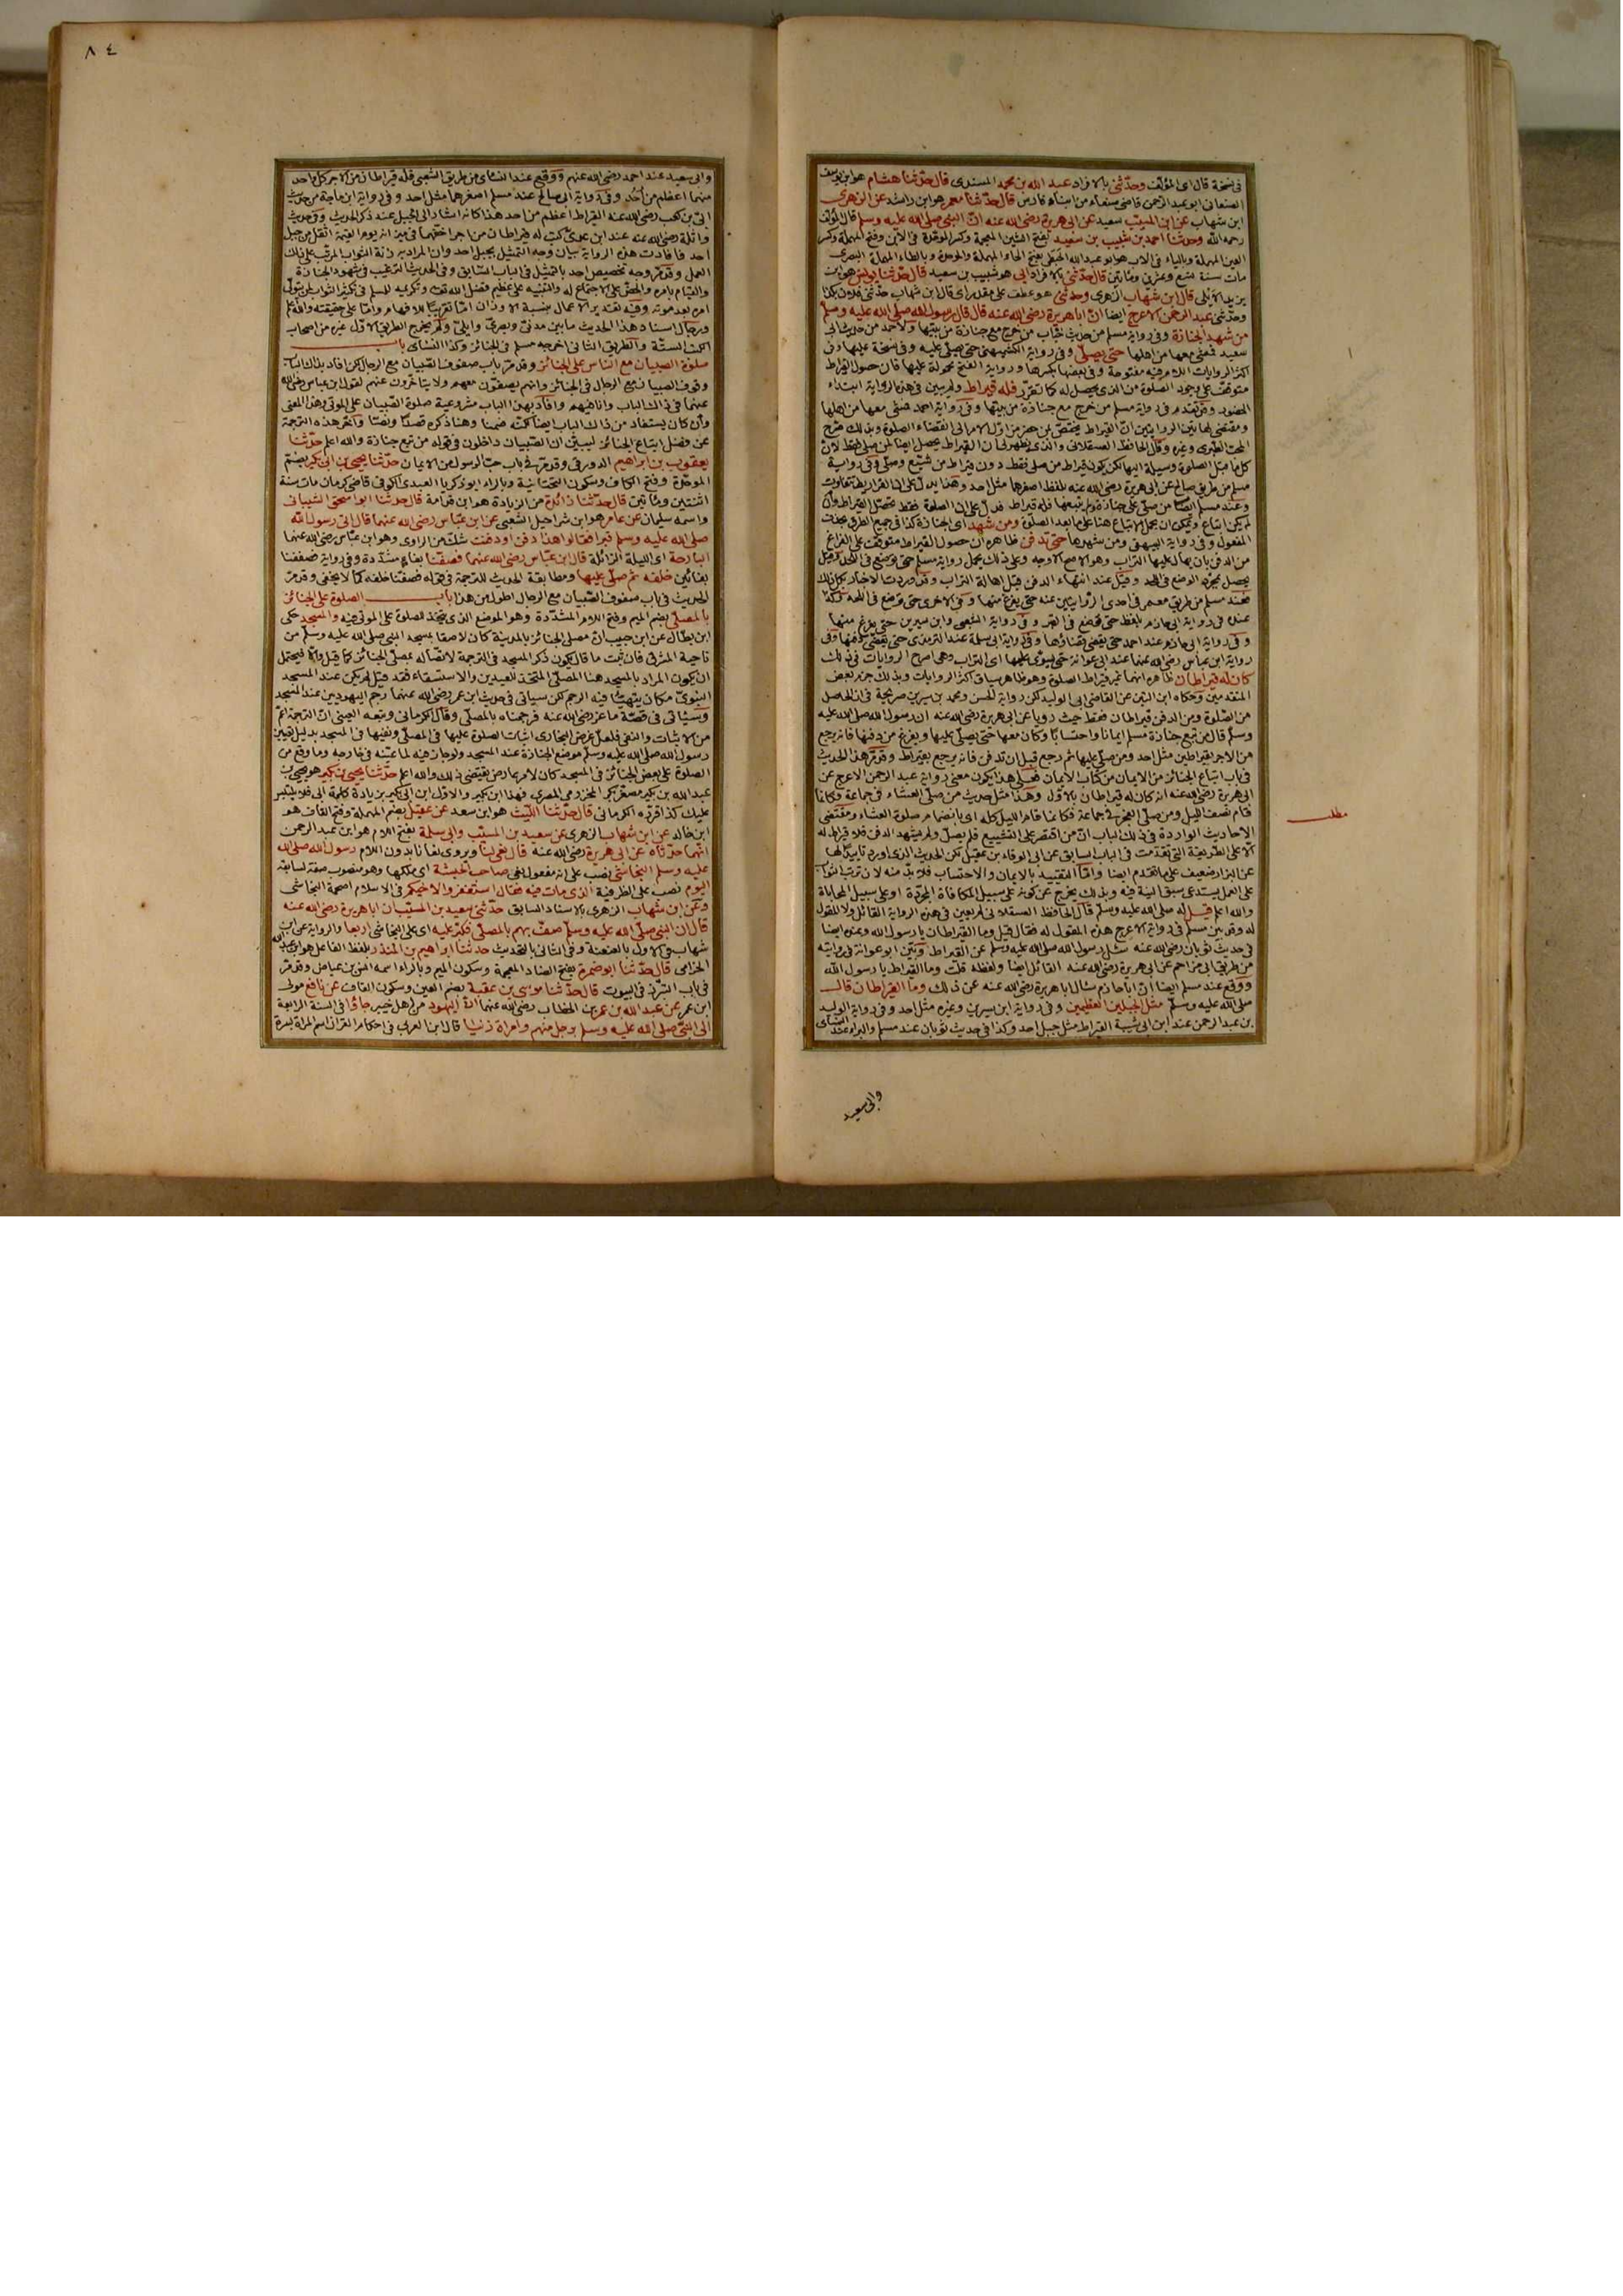 في نسخة قال اى المؤلف وحدّثنى بالافراد عبد الله بن محمد المسندى قال حدّثنا هشام هو ابن يوسف
الصنعانى ابو عبد الرحمن قاضى صنعاء من ابناء فارس قال حدّثنا معمر هو ابن راشد عن الزهرى
ابن شهاب عن ابن المسيّب سعيد عن ابى هريرة رضى الله عنه انّ النبى صلى الله عليه وسلم قال المؤلف
رحمه الله وحدثنا احمد بن شبيب بن سعيد بفتح الشين المعجمة وكسر الموحدة فى الابن وفتح المهملة وكسر
العين المهملة وبالياء فى الاب هو ابو عبد الله الحبطى بفتح الحاء المهملة والموحدة وبالطاء المهملة البصرى
مات سنة تسع وعشرين ومائتين قال حدّثنى بالافراد ابى هو شبيب بن سعيد قال حدّثنا يونس هو ابن
يزيد الايلى قال ابن شهاب الزهرى وحدثنى هو عطف على مقدر اى قال ابن شهاب حدّثنى فلان بكذا
وحدّثنى عبد الرحمن الاعرج ايضا انّ ابا هريرة رضى الله عنه قال قال رسول الله صلى الله عليه وسلم
من شهد الجنازة وفى رواية مسلم من حديث خبّاب من خرج مع جنازة من بيتها ولاحمد من حديث ابى
سعيد فمشى معها من اهلها حتى يصلّى وفى رواية الكشميهنى حتى يصلّى عليه وفى نسخة عليها وفى
اكثر الروايات اللام فيه مفتوحة وفى بعضها بكسرها ورواية الفتح محمولة عليها فان حصول القيراط
متوقف على وجود الصلوة من الذى يحصل له كما تقرّر فله قيراط ولم يبين فى هذه الرواية ابتداء
الحضور وقد تقدم فى رواية مسلم من خرج مع جنازة من بيتها وفى رواية احمد فمشى معها من اهلها
ومقتضى هاتين الروايتين انّ القيراط يختص بمن حضر من اوّل الامر الى انقضاء الصلوة وبذلك صرّح
المحب الطبرى وغيره وقال الحافظ العسقلانى والذى يظهر لى ان القيراط يحصل ايضا لمن صلى فقط لانّ
كل ما قبل الصلوة وسيلة اليها لكن يكون قيراط من صلى فقط دون قيراط من شيّع وصلّى وفى رواية
مسلم من طريق صالح عن ابى هريرة رضى الله عنه بلفظ اصغرهما مثل احد وهذا يدلّ على انّ القراريط تتفاوت
وعند مسلم ايضا من صلّى على جنازة ولم يتبعها فله قيراط فدلّ على انّ الصلوة فقط تحصّل القيراط وان
لم يكن اتباع ويمكن ان يحمل الاتباع هنا على ما بعد الصلوة ومن شهد اى الجنازة كذا فى جميع الطرق بحذف
المفعول وفى رواية البيهقى ومن شهدها حتى تدفن ظاهره ان حصول القيراط متوقف على الفراغ
من الدفن بان يهال عليها التراب وهو الاصح الاوجه وعلى ذلك يحمل رواية مسلم حتى توضع فى اللحد وقيل
يحصل بمجرد الوضع فى اللحد وقيل عند انتهاء الدفن قبل اهالة التراب وقد وردت الاخبار بكل ذلك
فعند مسلم من طريق معمر فى احدى الروايتين عنه حتى يفرغ منها وفى الاخرى حتى توضع فى اللحد وكذا
عنده فى رواية ابى حازم بلفظ حتى توضع فى القبر وفى رواية الشعبى وابن سيرين حتى يفرغ منها
وفى رواية ابى مزاحم عند احمد حتى يقضى قضاؤها وفى رواية ابى سلمة عند الترمذى حتى يقضى دفنها وفى
رواية ابن عباس رضى الله عنهما عند ابى عوانة حتى يسوّى عليها اى التراب وهى اصرح الروايات فى ذلك
كان له قيراطان ظاهره انهما غير قيراط الصلوة وهو ظاهر سياق اكثر الروايات وبذلك جزم بعض
المتقدمين وحكاه ابن التين عن القاضى ابى الوليد لكن رواية الحسن ومحمد بن سيرين صريحة فى ان الحاصل
من الصّلوة ومن الدفن قيراطان فقط حيث رويا عن ابى هريرة رضى الله عنه ان رسول الله صلى الله عليه
وسلم قال من تبع جنازة مسلم ايمانا واحتسابا وكان معها حتى يصلّى عليها ويفرغ من دفنها فانه يرجع
من الاجر بقيراطين مثل احد ومن صلّى عليها ثم رجع قبل ان تدفن فانه يرجع بقيراط وقد مرّ هذا الحديث
فى باب اتباع الجنائز من الايمان من كتاب الايمان فعلى هذا يكون معنى رواية عبد الرحمن الاعرج عن
ابى هريرة رضى الله عنه انه كان له قيراطان بالاول وهذا مثل حديث من صلّى العشاء فى جماعة فكانما
قام نصف الليل ومن صلّى الفجر فى جماعة فكانما قام الليل كله اى بانضمام صلوة العشاء ومقتضى
مطلب
الاحاديث الواردة فى ذلك الباب انّ من اقتصر على التشييع فلم يصلّ ولم يشهد الدفن فلا قيراط له
الّا على الطريقة التى تقدّمت فى الباب السابق عن ابى الوفاء بن عقيل لكن الحديث الذى اورد تأييدا لها
عن البزار ضعيف على ما تقدم ايضا وامّا التقييد بالايمان والاحتساب فلا بدّ منه لان ترتب الثواب
على العمل يستدعى سبق النية فيه وبذلك يخرج من كونه على سبيل المكافاة المجرّدة او على سبيل المحاباة
والله اعلم قيل له صلى الله عليه وسلّم قال الحافظ العسقلانى لم يعين فى هذه الرواية القائل ولا المقول
له وقد بين مسلم فى رواية الاعرج هذه المقول له فقال قيل وما القيراطان يا رسول الله وعنده ايضا
فى حديث ثوبان رضى الله عنه سئل رسول الله صلى الله عليه وسلم عن القيراط وبيّن ابو عوانة فى روايته
من طريق ابى مزاحم عن ابى هريرة رضى الله عنه القائل ايضا ولفظه قلت وما القيراط يا رسول الله
ووقع عند مسلم ايضا انّ ابا حازم سأل ابا هريرة رضى الله عنه عن ذلك وما القيراطان قال
صلى الله عليه وسلّم مثل الجبلين العظيمين وفى رواية ابن سيرين وغيره مثل احد وفى رواية الوليد
بن عبد الرحمن عند ابن ابى شيبة القيراط مثل جبل احد وكذا فى حديث ثوبان عند مسلم والبراء عند النسائى
وابى سعيد
٨٤
وابى سعيد عند احمد رضى الله عنهم ووقع عند النسائى من طريق الشعبى فله قيراطان من الاجر كل واحد
منهما اعظم من اُحُد وفى رواية ابى صالح عند مسلم اصغرهما مثل احد وفى رواية ابن ماجة من حديث
ابىّ بن كعب رضى الله عنه القيراط اعظم من احد هذا كانه اشار الى الجبل عند ذكر الحديث وفى حديث
واثلة رضى الله عنه عند ابن عدىّ كتب له قيراطان من اجر اخفّهما فى ميزانه يوم القيمة اثقل من جبل
احد فافادت هذه الرواية بيان وجه التمثيل بجبل احد وان المراد به زنة الثواب المرتّب على ذلك
العمل وقد مرّ وجه تخصيص احد بالتمثيل فى الباب السّابق وفى الحديث الترغيب فى شهود الجنازة
والقيام بامره والحضّ على الاجتماع له والتنبيه على عظيم فضل الله تعالى وتكريمه للمسلم فى تكثير الثواب لمن يتولّى
امره بعد موته وفيه تقدير الاعمال بنسبة الاوزان امّا تقريبًا للافهام وامّا على حقيقته والله اعلم
ورجال اسناد هذا الحديث ما بين مدنىّ وبصرىّ وايلىّ ولم يخرج الطريق الاوّل غيره من اصحاب
الكتب الستّة والطريق الثانى اخرجه مسلم فى الجنائز وكذا النسائى باب
صلوة الصبيان مع الناس على الجنائز وقد مرّ باب صفوف الصّبيان مع الرجال لكن افاد بذلك الباب
وقوف الصبيان مع الرجال فى الجنائز وانهم يصفّون معهم ولا يتاخرون عنهم لقول ابن عباس رضى الله
عنهما فى ذلك الباب وانا فيهم وافاد بهذا الباب مشروعية صلوة الصّبيان على الموتى وهذا المعنى
وان كان يستفاد من ذلك الباب ايضا لكنّه ضمنا وهنا ذكره قصدًا ونصّا واخّر هذه الترجمة
عن فضل اتباع الجنائز ليبيّن ان الصّبيان داخلون فى قوله من تبع جنازة والله اعلم حدّثنا
يعقوب بن ابراهيم الدورقى وقد مرّ فى باب حبّ الرسول من الايمان حدّثنا يحيى بن ابى بكير بضمّ
الموحّدة وفتح الكاف وسكون التحتانية وبالراء ابو زكريا العبدى الكوفى قاضى كرمان مات سنة
اثنتين ومائتين قال حدّثنا زائدة من الزيادة هو ابن قدامة قال حدّثنا ابو اسحق الشيبانى
واسمه سليمان عن عامر هو ابن شراحيل الشعبى عن ابن عبّاس رضى الله عنهما قال اتى رسول الله
صلى الله عليه وسلم قبرا فقالوا هذا دفن او دفنت شكّ من الراوى وهو ابن عبّاس رضى الله عنهما
البارحة اى الليلة الزائلة قال ابن عبّاس رضى الله عنهما فصفّنا بفاء مشدّدة وفى رواية فصففنا
بفائين خلفه ثم صلّى عليها ومطابقة الحديث للترجمة فى قوله فصفّنا خلفه كما لا يخفى وقد مرّ
الحديث فى باب صفوف الصّبيان مع الرجال اطول من هذا باب الصلوة على الجنائز
بالمصلّى بضم الميم وفتح اللام المشدّدة وهو الموضع الذى يتخذ للصلوة على الموتى فيه والمسجد حكى
ابن بطّال عن ابن حبيب انّ مصلى الجنائز بالمدينة كان لاصقا بمسجد النبى صلى الله عليه وسلّم من
ناحية المشرق فان ثبت ما قال يكون ذكر المسجد فى الترجمة لاتّصاله بمصلّى الجنائز كما قيل والّا فيحتمل
ان يكون المراد بالمسجد هنا المصلّى المتخذ للعيدين والاستسقاء فقد قيل لم يكن عند المسجد
النبوىّ مكان يتهيّأ فيه الرجم لكن سياتى فى حديث ابن عمر رضى الله عنهما رجم اليهوديين عند المسجد
وسيأتى فى قصّة ماعز رضى الله عنه فرجمناه بالمصلّى وقال الكرمانى وتبعه العينى انّ الترجمة اعمّ
من الاثبات والنفى فلعلّ غرض البخارى اثبات الصلوة عليها فى المصلّى ونفيها فى المسجد بدليل تعيين
رسول الله صلى الله عليه وسلّم موضع الجنازة عند المسجد ولو جاز فيه لما عيّنه فى خارجه وما وقع من
الصلوة على بعض الجنائز فى المسجد كان لامر عارض يقتضى ذلك والله اعلم حدّثنا يحيى بن بكير هو يحيى بن
عبد الله بن بكير مصغّر بكر المخزومى المصرى فهذا ابن بكير والاول ابن ابى بكير بزيادة كلمة ابى فلا يلتبس
عليك كذا قرّره الكرمانى قال حدّثنا اللّيث هو ابن سعد عن عقيل بضم المهملة وفتح القاف هو
ابن خالد عن ابن شهاب الزهرى عن سعيد بن المسيّب وابى سلمة بفتح اللام هو ابن عبد الرحمن
انّهما حدّثاه عن ابى هريرة رضى الله عنه قال نعى لنا ويروى نعانا بدون اللام رسول الله صلى الله
عليه وسلم النجاشىّ نصب على انه مفعول لنعى صاحب الحبشة اى ملكها وهو منصوب صفة لسابقه
اليوم نصب على الظرفية الذى مات فيه فقال استغفروا لاخيكم فى الاسلام اصحمة النجاشى
وعن ابن شهاب الزهرى بالاسناد السابق حدّثنى سعيد بن المسيّب ان ابا هريرة رضى الله عنه
قال ان النبى صلّى الله عليه وسلّم صفّ بهم بالمصلّى فكبّر عليه اى على النجاشى اربعا والرواية عن ابن
شهاب فى الاول بالعنعنة وفى الثانى بالتحديث حدثنا ابراهيم بن المنذر بلفظ الفاعل هو ابن عبد الله
الحزامى قال حدّثنا ابو ضمرة بفتح الضاد المعجمة وسكون الميم وبالراء اسمه انس بن عياض وقد مرّ
فى باب التبرّز فى البيوت قال حدّثنا موسى بن عقبة بضم العين وسكون القاف عن نافع مولى
ابن عمر عن عبد الله بن عمر بن الخطاب رضى الله عنهما انّ اليهود من اهل خيبر جاؤا فى السنة الرابعة
الى النّبىّ صلى الله عليه وسلم برجل منهم وامراة زنيا قال ابن العربى فى احكام القران اسم المراة بسرة